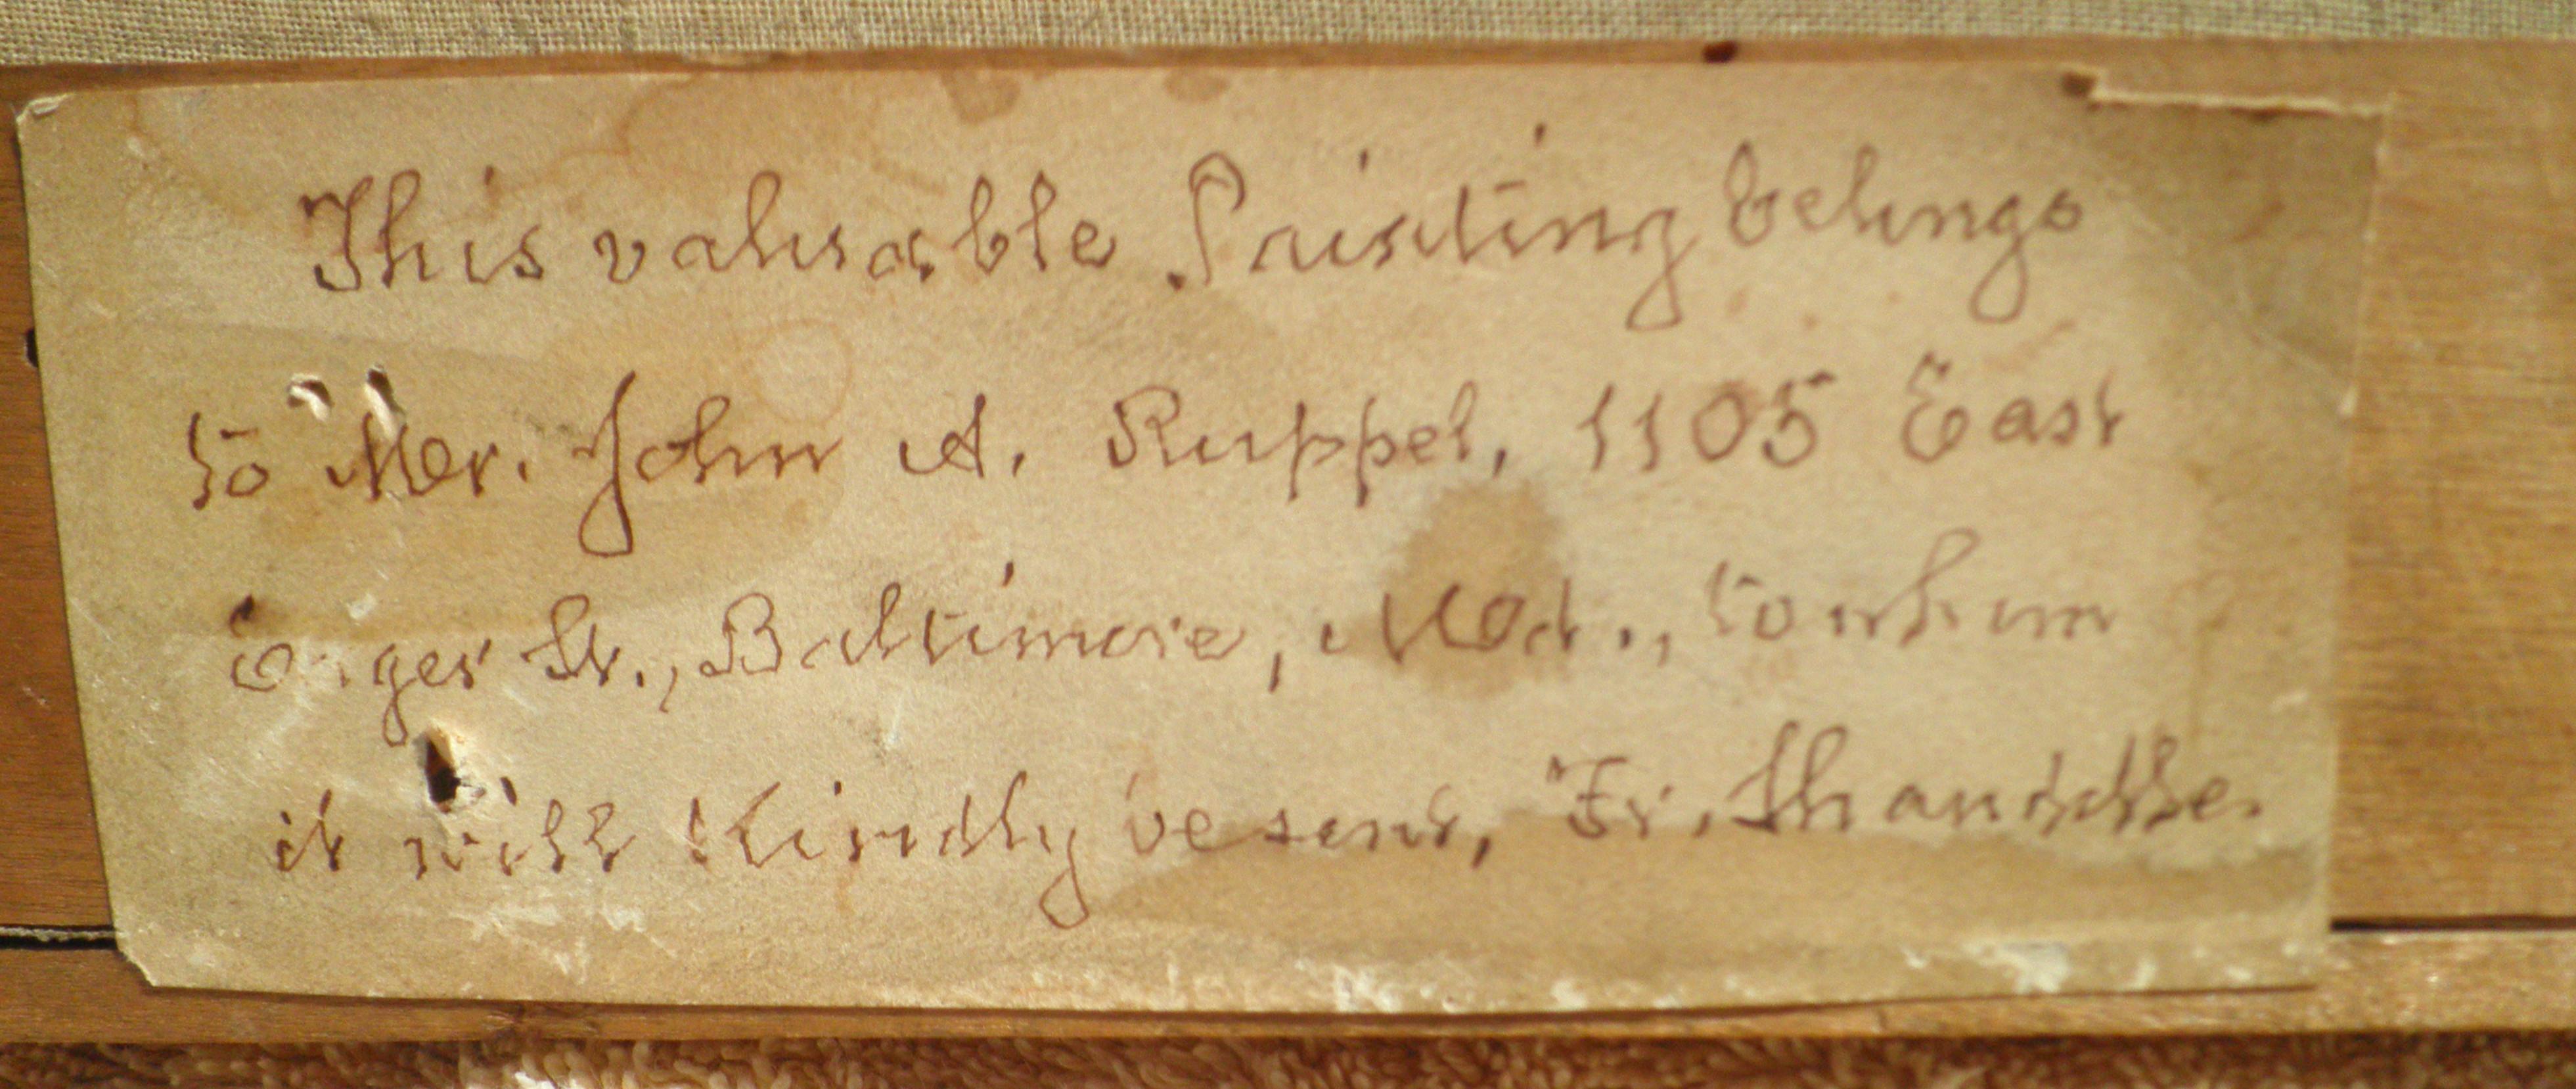 This valuable Painting belongs
to Mr. John A. Ruppel, 1105 East
St., Baltimore, Md., to whom
it will Kindly be sent, Fr.